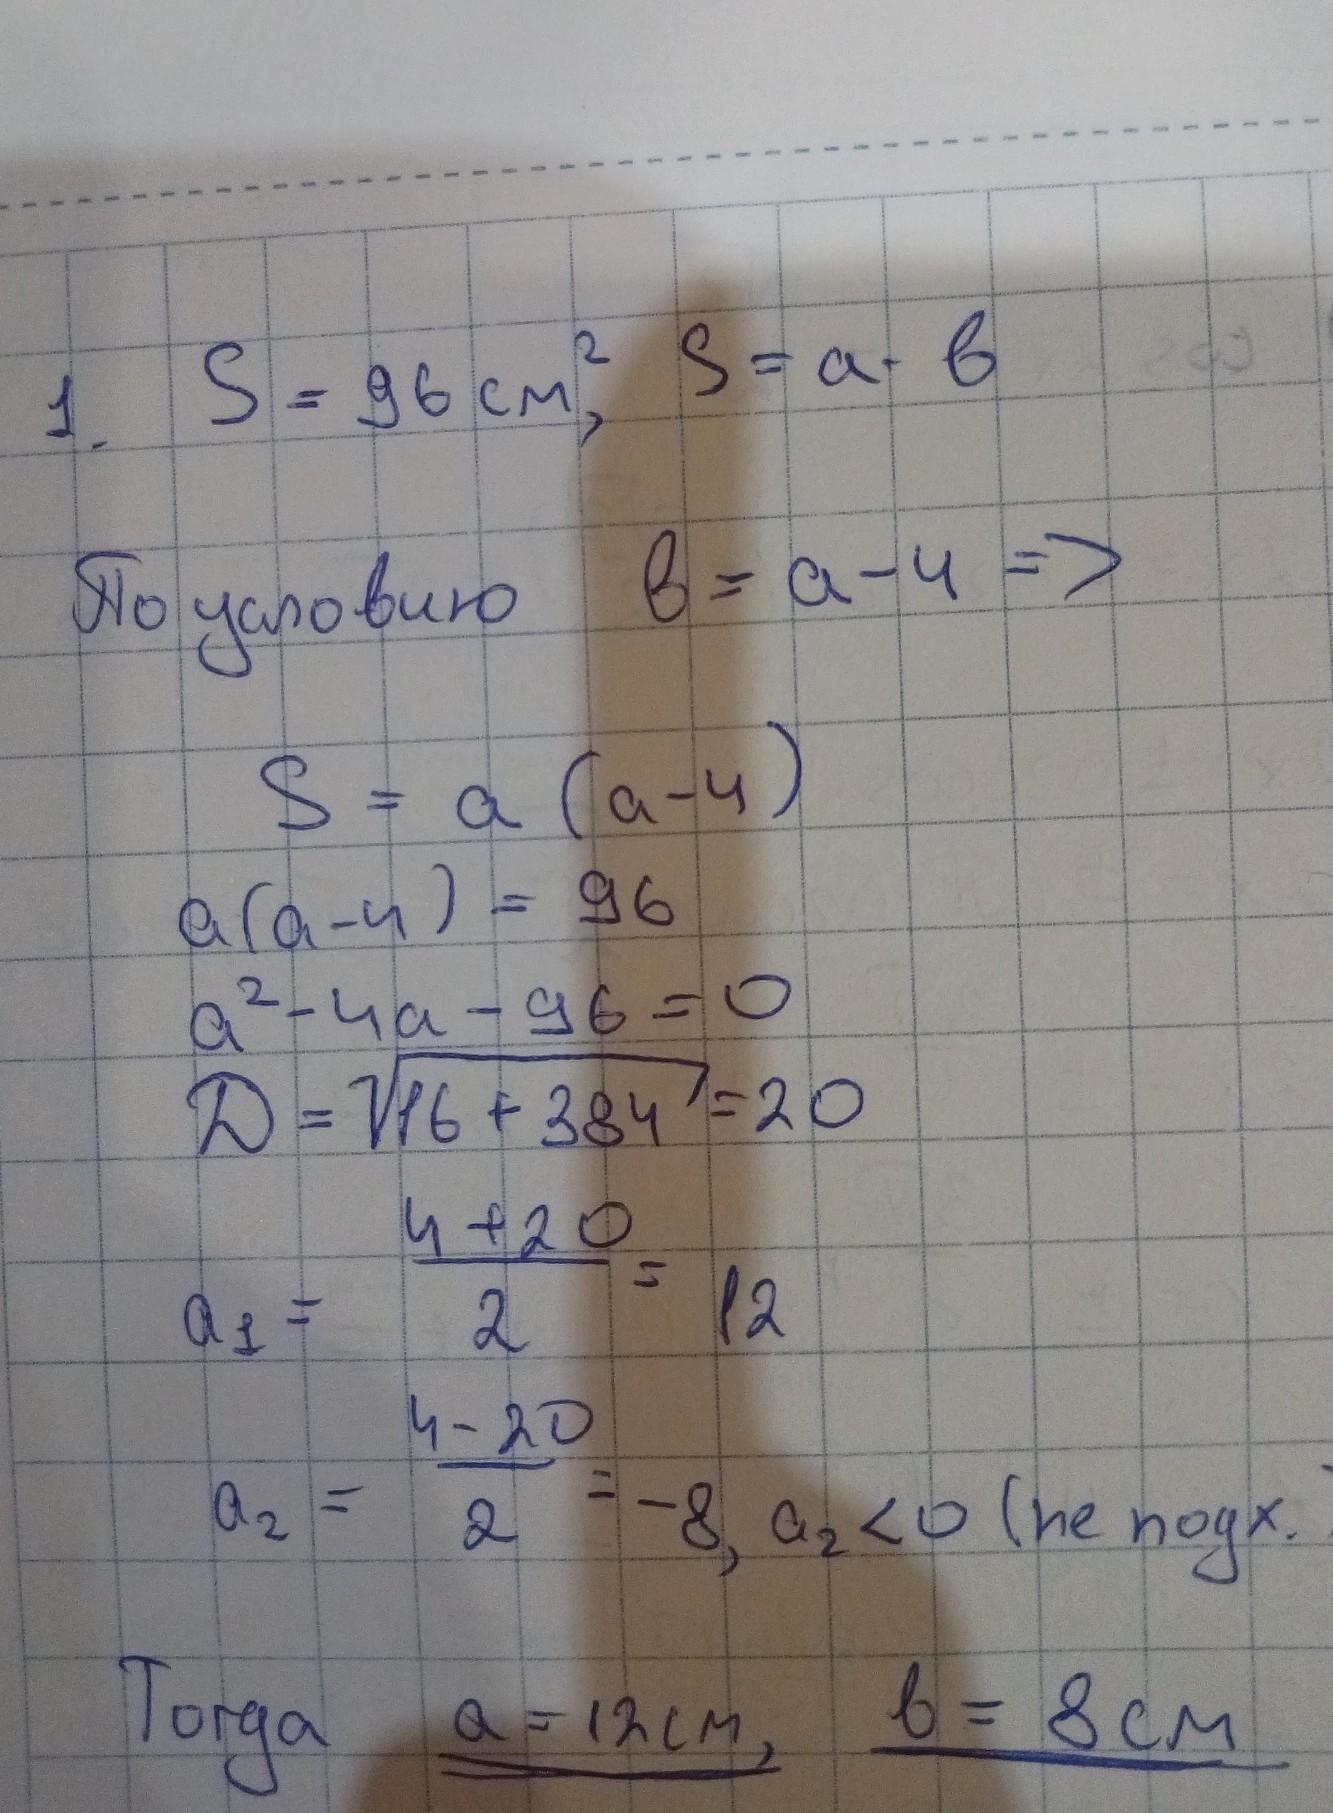 1. S = 96 см², S = a · в
По условию в = a - 4 =>
S = a (a - 4)
a(a - 4) = 96
a² - 4a - 96 = 0
D = √16 + 384 = 20
a₁ = 4 + 20 / 2 = 12
a₂ = 4 - 20 / 2 = -8, a₂ < 0 (не подх.)
Тогда a = 12 см, в = 8 см